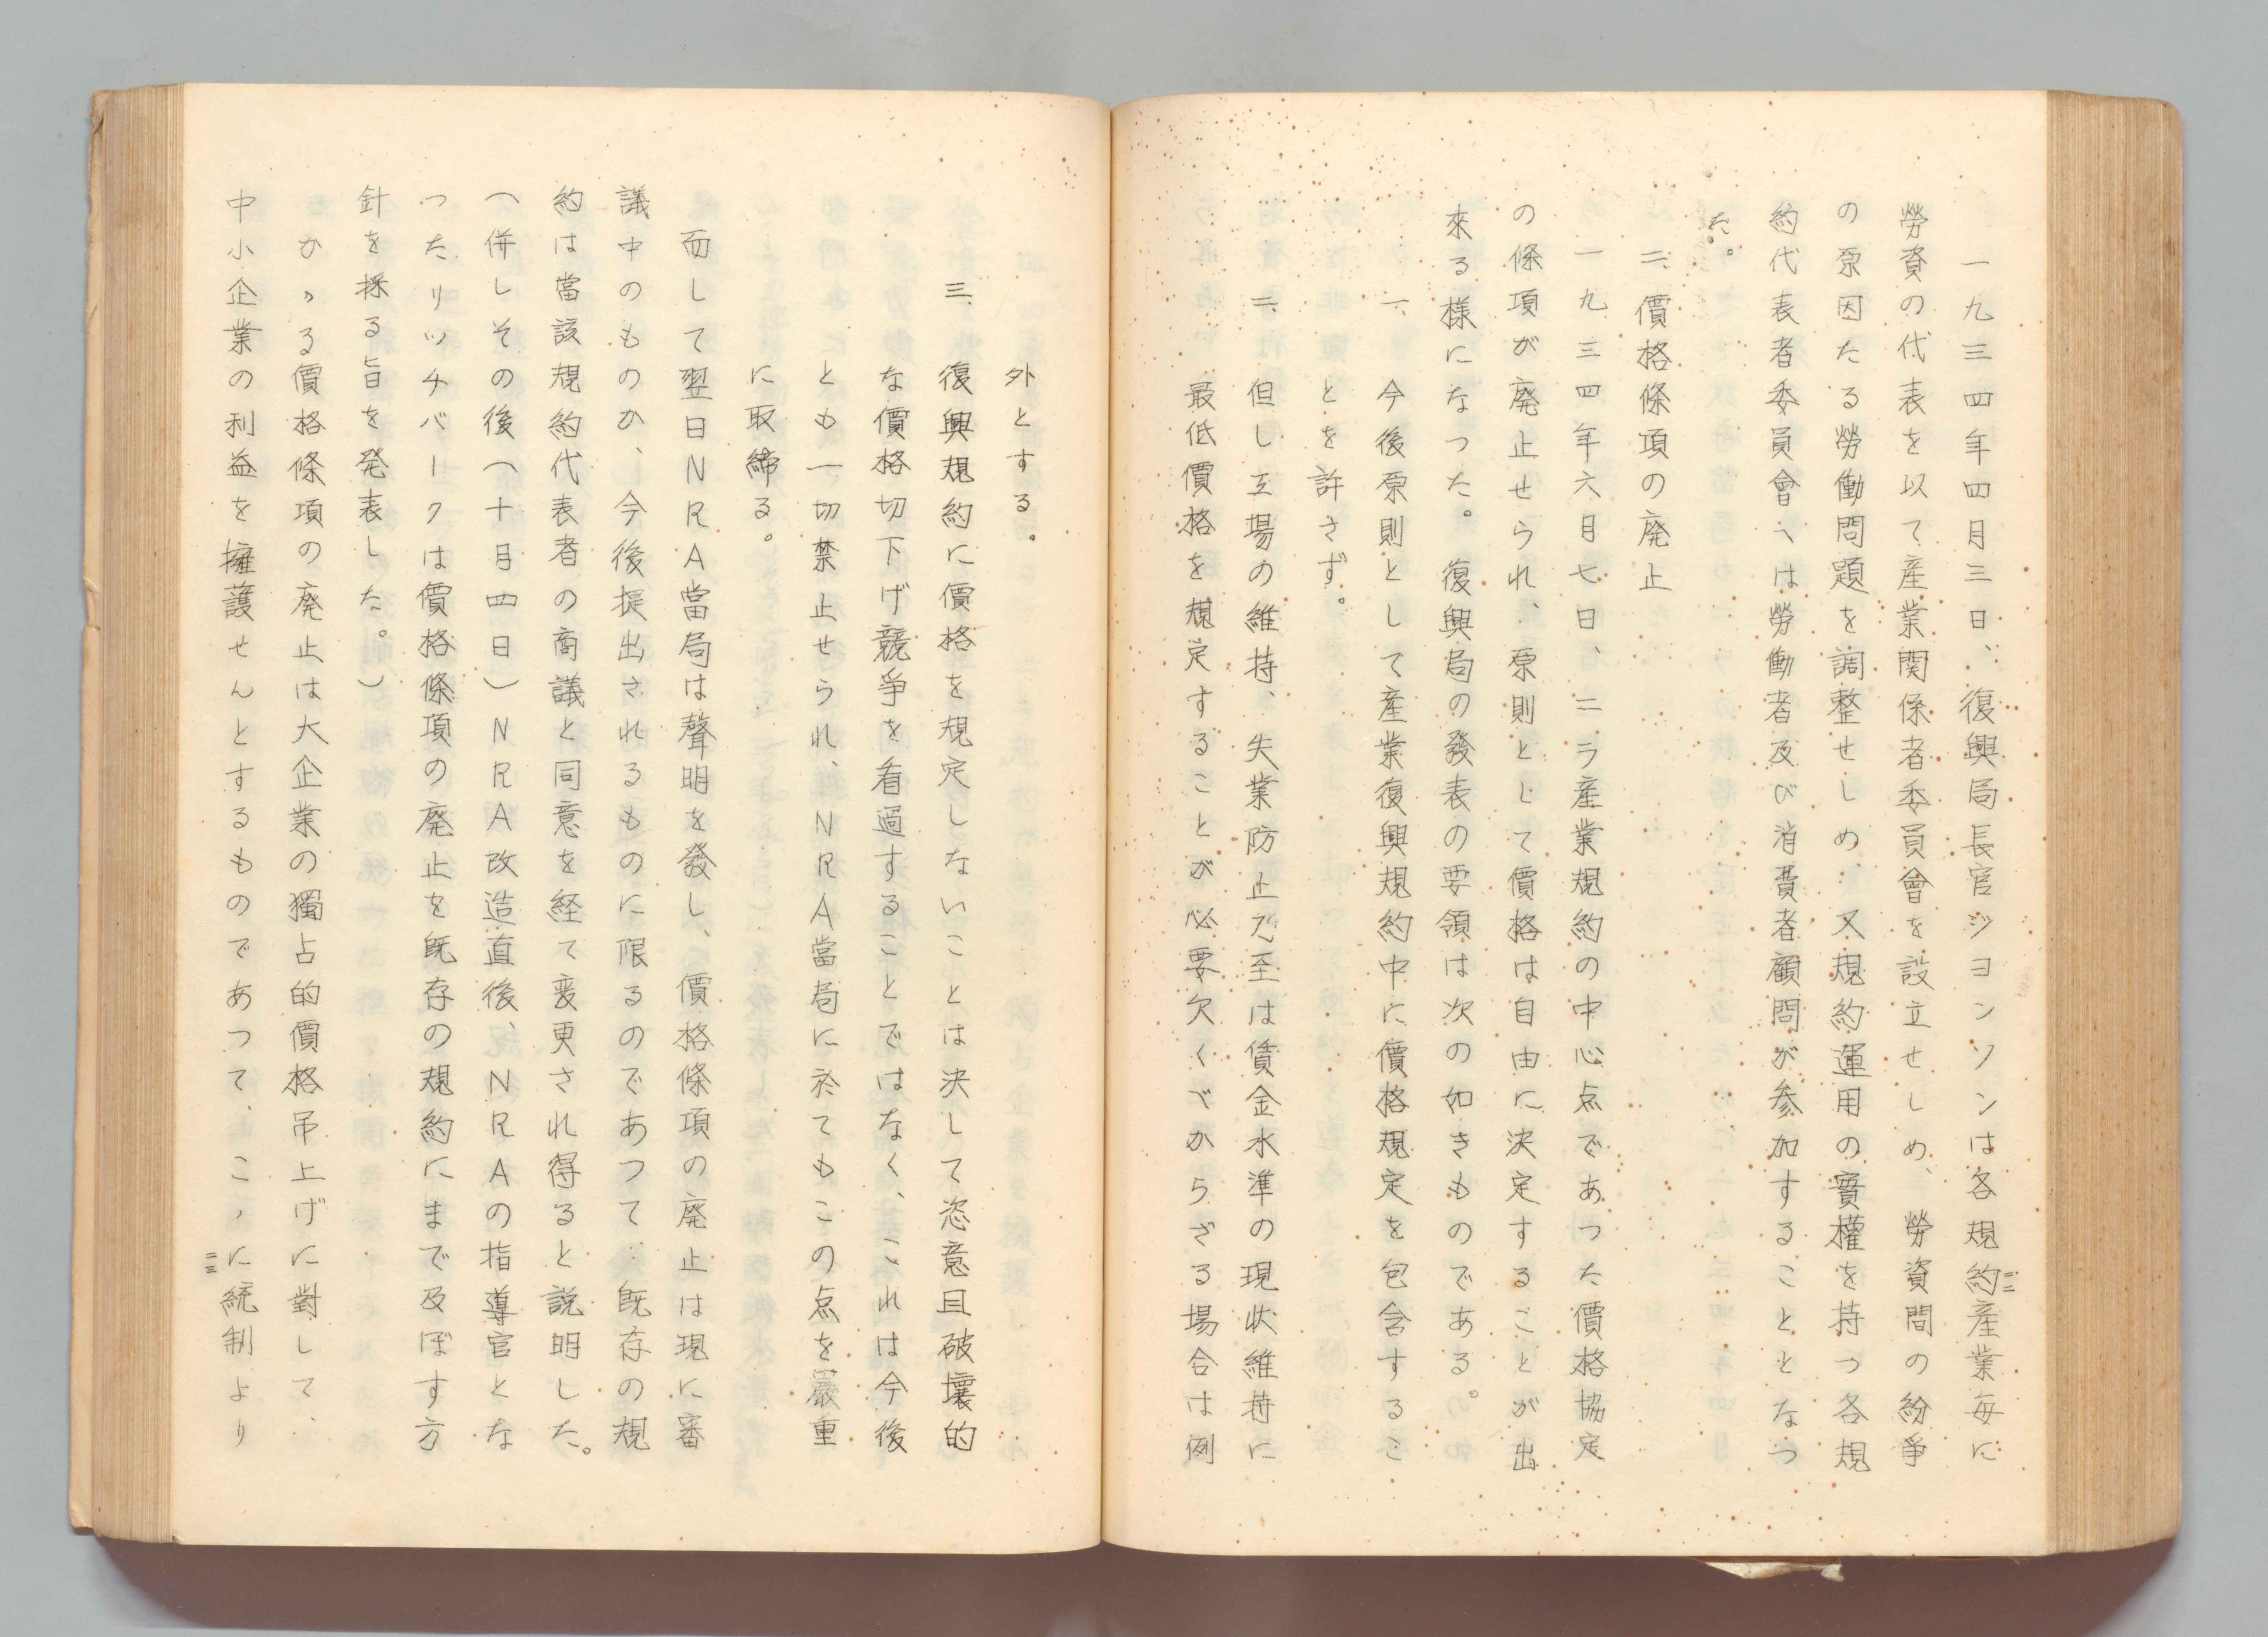 一九三四年四月三日、復興局長官ジヨンソンは各規約産業毎に
勞資の代表を以て産業関係者委員會を設立せしめ、勞資間の紛爭
の原因たる勞働問題を調整せしめ、又規約運用の實權を持つ各規
約代表者委員會へは勞働者及び消費者顧問が参加することとなつ
た。
二、價格條項の廃止
一九三四年六月七日、ニラ産業規約の中心点であつた價格協定
の條項が廃止せられ、原則として價格は自由に決定することが出
来る様になつた。復興局の發表の要領は次の如きものである。
一、今後原則として産業復興規約中に價格規定を包含するこ
とを許さず。
二、但し工場の維持、失業防止乃至は賃金水準の現状維持に
最低價格を規定することが必要欠くべからざる場合は例
二二
外とする。
三、復興規約に價格を規定しないことは決して恣意且破壊的
な價格切下げ競爭を看過することではなく、これは今後
とも一切禁止せられ、NRA當局に於てもこの点を嚴重
に取締る。
而して翌日NRA當局は聲明を發し、價格條項の廃止は現に審
議中のものか、今後提出されるものに限るのであつて、既存の規
約は當該規約代表者の商議と同意を経て変更され得ると説明した。
（併しその後（十月四日）NRA改造直後、NRAの指導官とな
つたリツチバークは價格條項の廃止を既存の規約にまで及ぼす方
針を採る旨を発表した。）
かゝる價格條項の廃止は大企業の獨占的價格吊上げに對して、
中小企業の利益を擁護せんとするものであつて、こゝに統制より
二三